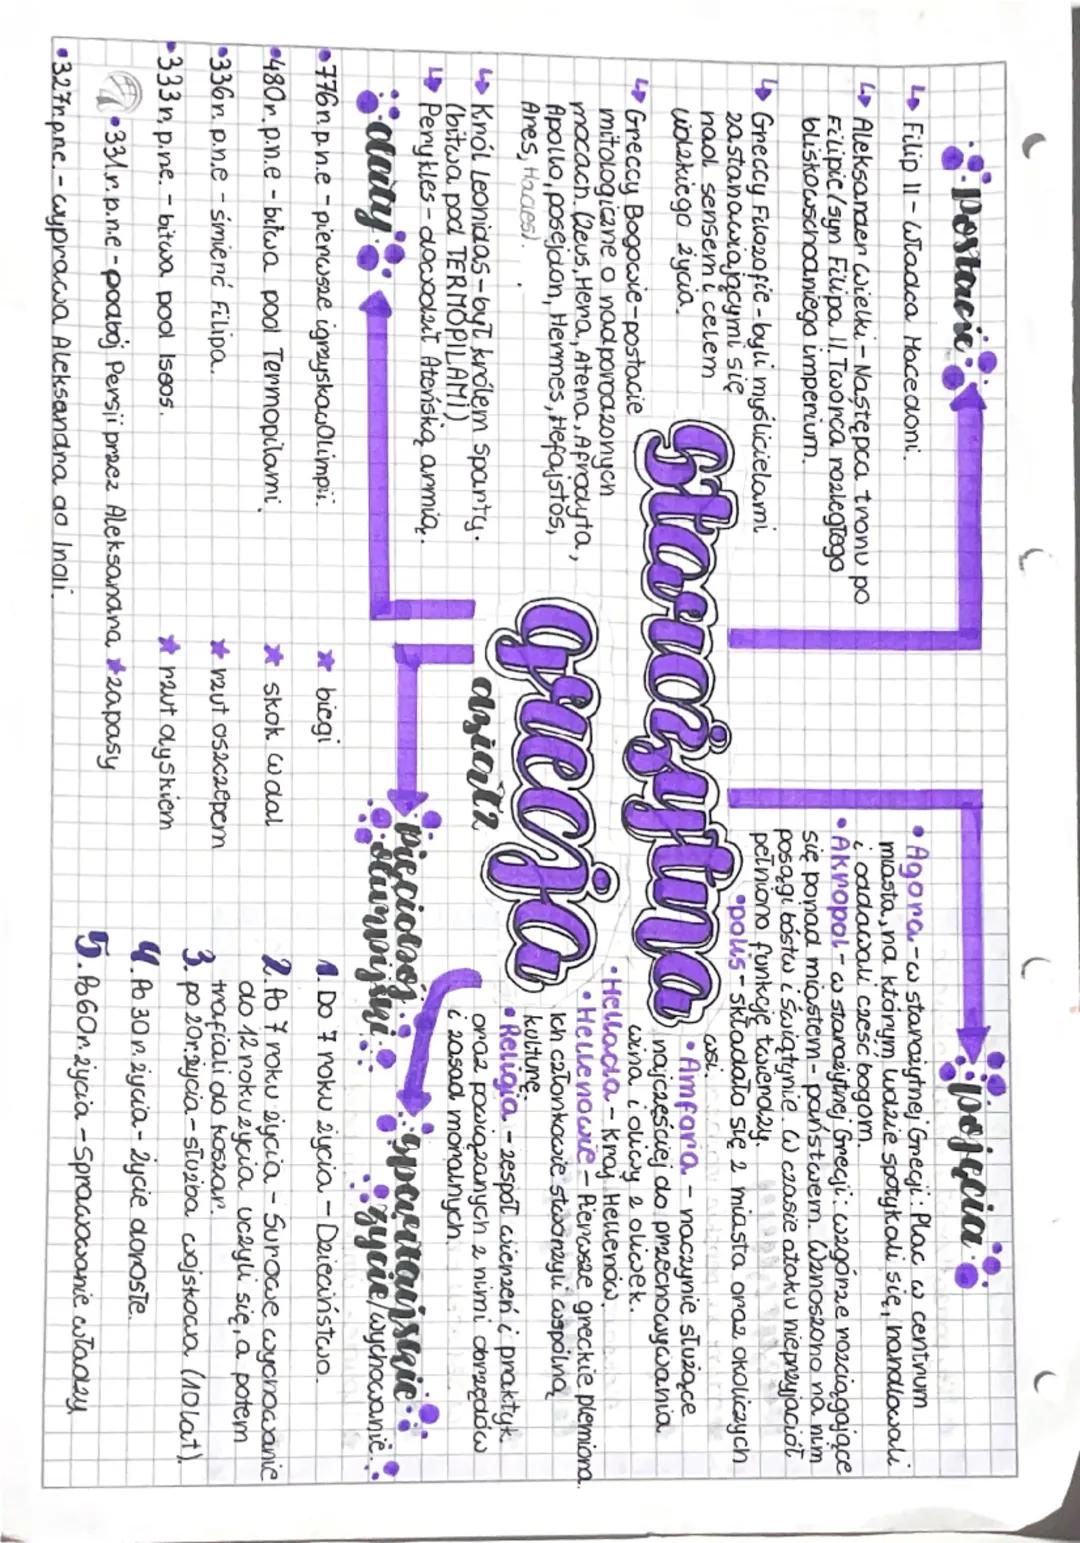 Starożytna
Grecja
dział 2
postacie
↳ Filip II - władca Macedoni.
↳ Aleksander Wielki - Następca tronu po
Filipie (syn Filipa II. Twórca rozległego
bliskowschodniego imperium.
↳ Greccy Filozofie - byli myślicielami
zastanawiającymi się
nad sensem i celem
ludzkiego życia.
↳ Greccy Bogowie - postacie
mitologiczne o nadporodzonych
mocach (Zeus, Hera, Atena, Afrodyta,
Apollo, posejdon, Hermes, Hefajstos,
Ares, Hades).
↳ Król Leonidas - był królem Sparty.
(bitwa pod TERMOPILAMI)
↳ Perykles - dowodził Ateńską armią.
pojęcia
• Agora - w starożytnej Grecji: Plac w centrum
miasta, na którym ludzie spotykali się, handlowali
i oddawali cześć bogom.
• Akropol - w starożytnej Grecji: wzgórze rozciągające
się ponad miastem - państwem. Wznoszono na nim
posągi bóstw i świątynie. W czasie ataku nieprzyjaciół
pełniono funkcję twierdzy.
• polis - składała się z miasta oraz okolicznych
wsi.
• Amfora - naczynie służące
najczęściej do przechowywania
wina i oliwy z oliwek.
• Hellada - Kraj Hellenów.
• Hellenowie - Pierwsze greckie plemiona.
Ich członkowie stworzyli wspólną
kulturę.
• Religia - zespół wierzeń i praktyk
oraz powiązanych z nimi obrzędów
i zasad moralnych.
daty
• 776 r.p.n.e - pierwsze igrzyska w Olimpii.
• 480 r.p.n.e - bitwa pod Termopilami.
• 336 r.p.n.e - śmierć Filipa.
• 333 r.p.n.e. - bitwa pod Issos.
• 331.r.p.n.e - podbój Persji przez Aleksandra
• 327r.p.n.e. - wyprawa Aleksandra do Indii.
Pięciobój
olimpijski
★ biegi
★ skok w dal
★ rzut oszczepem
★ rzut dyskiem
★ zapasy
spartańskie
życie/wychowanie
1. Do 7 roku życia - Dzieciństwo.
2. Po 7 roku życia - Surowe wychowanie
do 12 roku życia uczyli się, a potem
trafiali do koszar.
3. po 20r.życia - służba wojskowa (10 lat).
4. Po 30 r. życia - życie dorosłe.
5. Po 60r. życia - Sprawowanie władzy